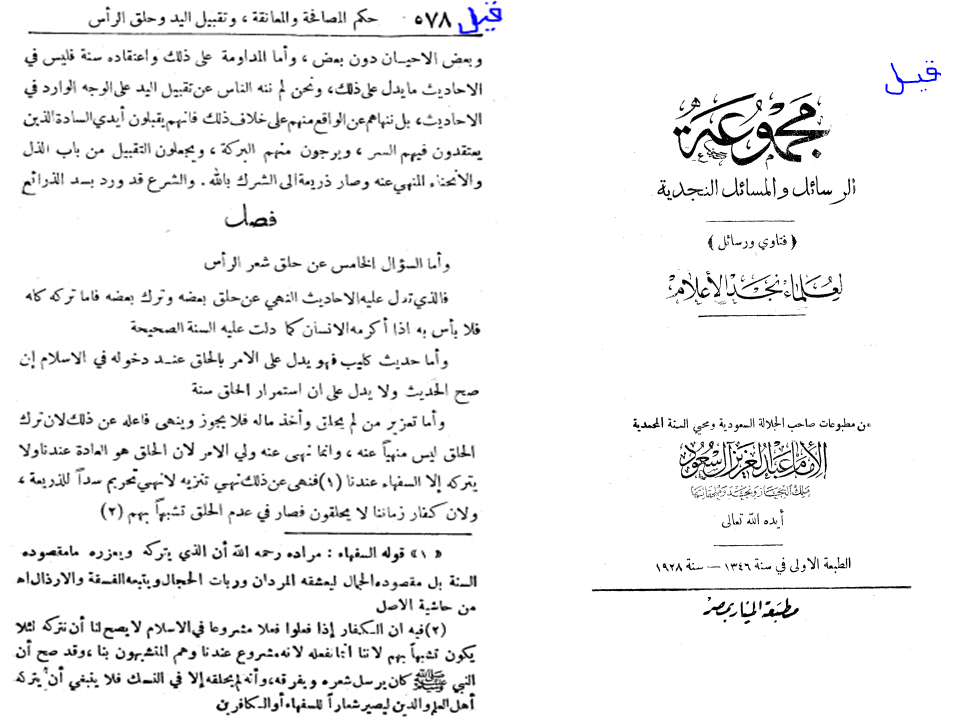 قيل
مجموعة
الرسائل والمسائل النجدية
﴿ فتاوي ورسائل ﴾
لعلماء نجد الأعلام
من مطبوعات صاحب الجلالة السعودية ومحيي السنة المحمدية
الإمام عبد العزيز آل سعود
ملك الحجاز ونجد وملحقاتها
أيده الله تعالى
الطبعة الاولى في سنة ١٣٤٦ – سنة ١٩٢٨
مطبعة المنار بمصر
قيل
٥٧٨ حكم المصافحة والمعانقة ، وتقبيل اليد وحلق الرأس
وبعض الاحيان دون بعض ، وأما المداومة على ذلك واعتقاده سنة فليس في
الاحاديث ما يدل على ذلك، ونحن لم ننه الناس عن تقبيل اليد على الوجه الوارد في
الاحاديث، بل ننهاهم عن الواقع منهم على خلاف ذلك فانهم يقبلون أيدي السادة الذين
يعتقدون فيهم السر ، ويرجون منهم البركة ، ويجعلون التقبيل من باب الذل
والانحناء المنهي عنه وصار ذريعة الى الشرك بالله . والشرع قد ورد بسد الذرائع
فصل
وأما السؤال الخامس عن حلق شعر الرأس
فالذي تدل عليه الاحاديث النهي عن حلق بعضه وترك بعضه فاما تركه كله
فلا بأس به اذا أكرمه الانسان كما دلت عليه السنة الصحيحة
وأما حديث كليب فهو يدل على الامر بالحلق عند دخوله في الاسلام إن
صح الحديث ولا يدل على ان استمرار الحلق سنة
وأما تعزير من لم يحلق وأخذ ماله فلا يجوز وينهى فاعله عن ذلك لان ترك
الحلق ليس منهياً عنه ، وانما نهى عنه ولي الامر لان الحلق هو العادة عندنا ولا
يتركه إلا السفهاء عندنا (١) فنهى عن ذلك نهي تنزيه لا نهي تحريم سداً للذريعة ،
ولان كفار زماننا لا يحلقون فصار في عدم الحلق تشبهاً بهم (٢)
«١» قوله السفهاء : مراده رحمه الله أن الذي يتركه ويعزره مامقصوده
السنة بل مقصوده الجمال ليعشقه المردان وربات الحجال ويتبعه الفسقة والارذال اه
من حاشية الاصل
(٢) فيه ان الكفار إذا فعلوا فعلا مشروعا في الاسلام لا يصح لنا أن نتركه لئلا
يكون تشبهاً بهم لاننا انما نفعله لانه مشروع عندنا وهم المتشبهون بنا ، وقد صح أن
النبي ﷺ كان يرسل شعره ويفرقه ، وأنه لم يحلقه إلا في النسك فلا ينبغي أن يتركه
أهل العلم والدين ليصير شعاراً للسفهاء أو الكافرين